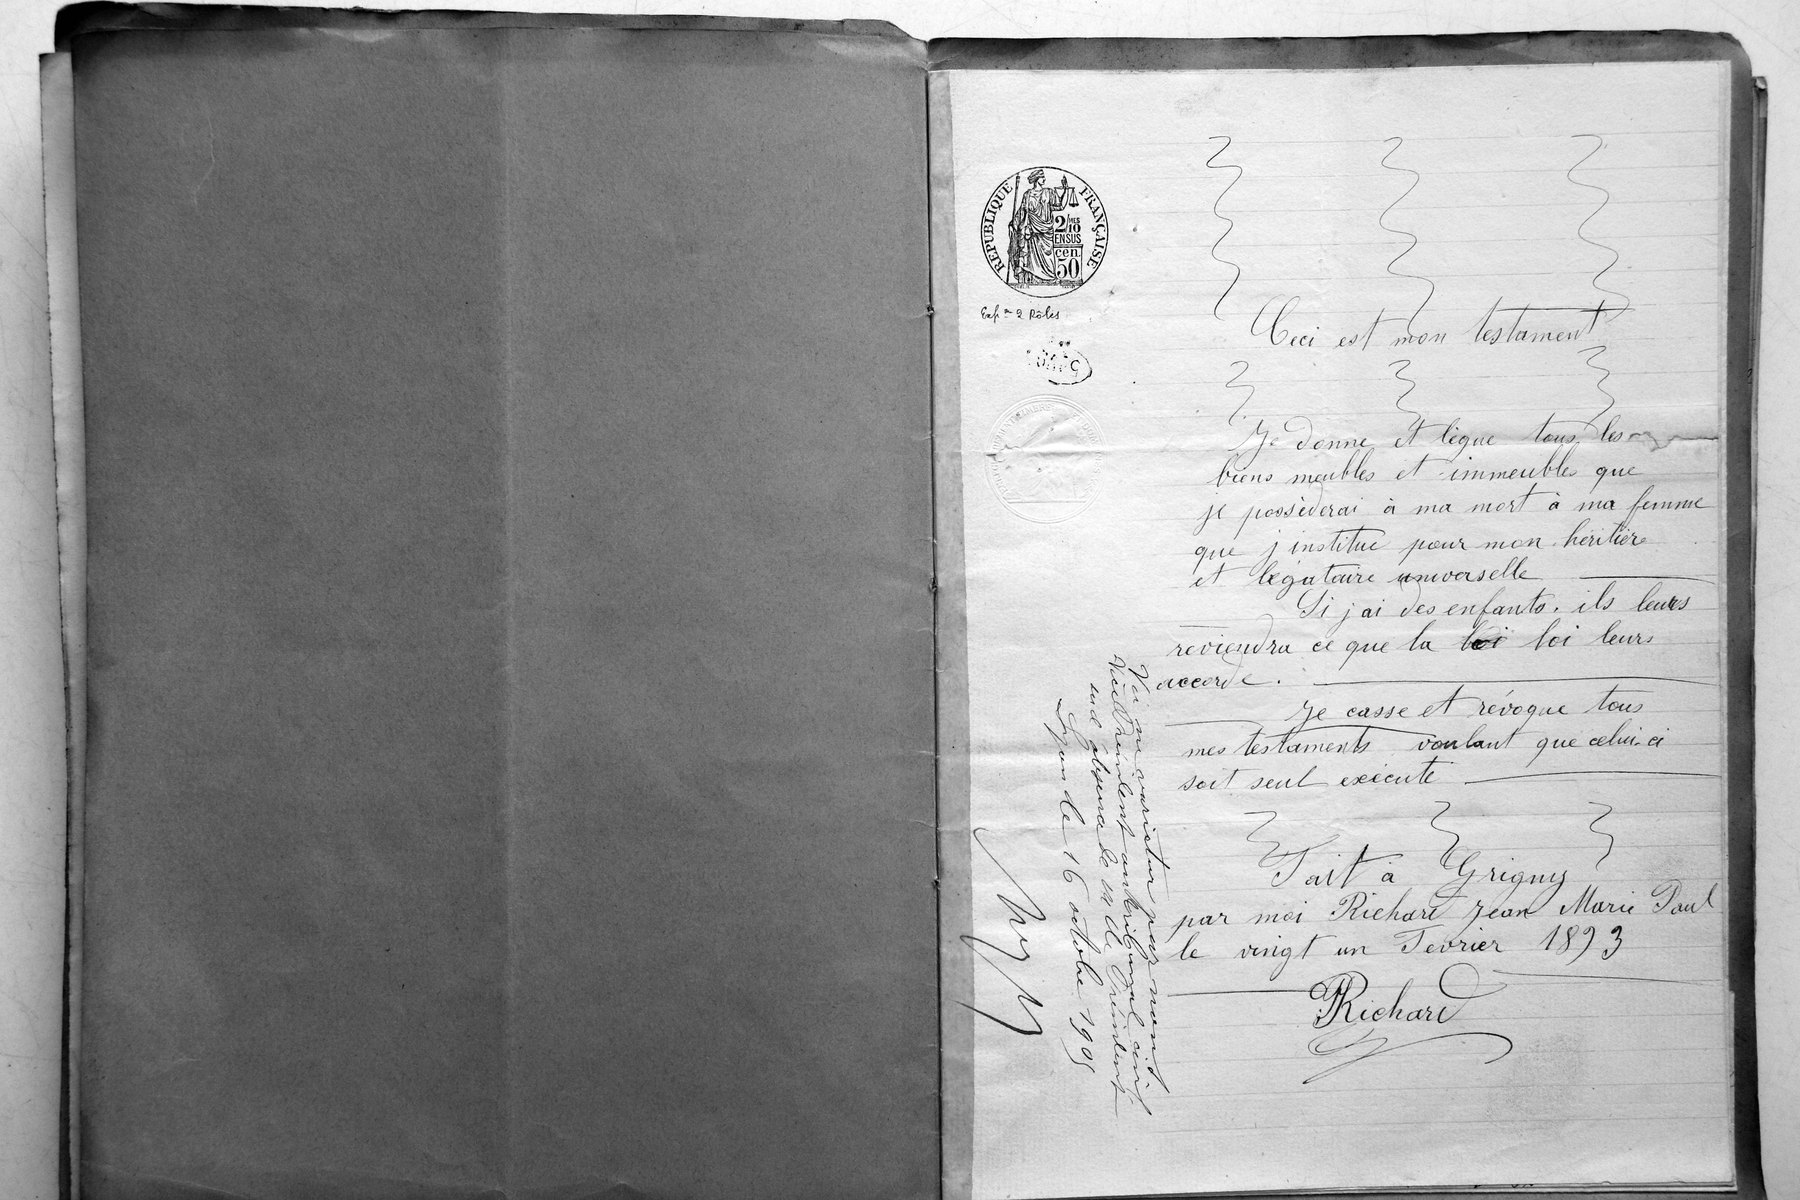 RÉPUBLIQUE FRANÇAISE
2/MES
10
EN SUS
cen.
50
Expon 2 Rôles
Ceci est mon testament
Je donne et lègue tous les
biens meubles et immeubles que
je possèderai à ma mort à ma femme
que j institue pour mon héritière
et légataire universelle
Si j'ai des enfants. ils leurs
reviendra ce que la loi loi leurs
accorde.
Je casse et révoque tous
mes testaments voulant que celui-ci
soit seul exécuté
Fait à Grigny
par moi Richard Jean Marie Paul
le vingt un Fevrier 1893
Richard
Vu ne varietur par nous
Vice Président au tribunal civil
en l'absence de M. le Président
Lyon le 16 octobre 1905